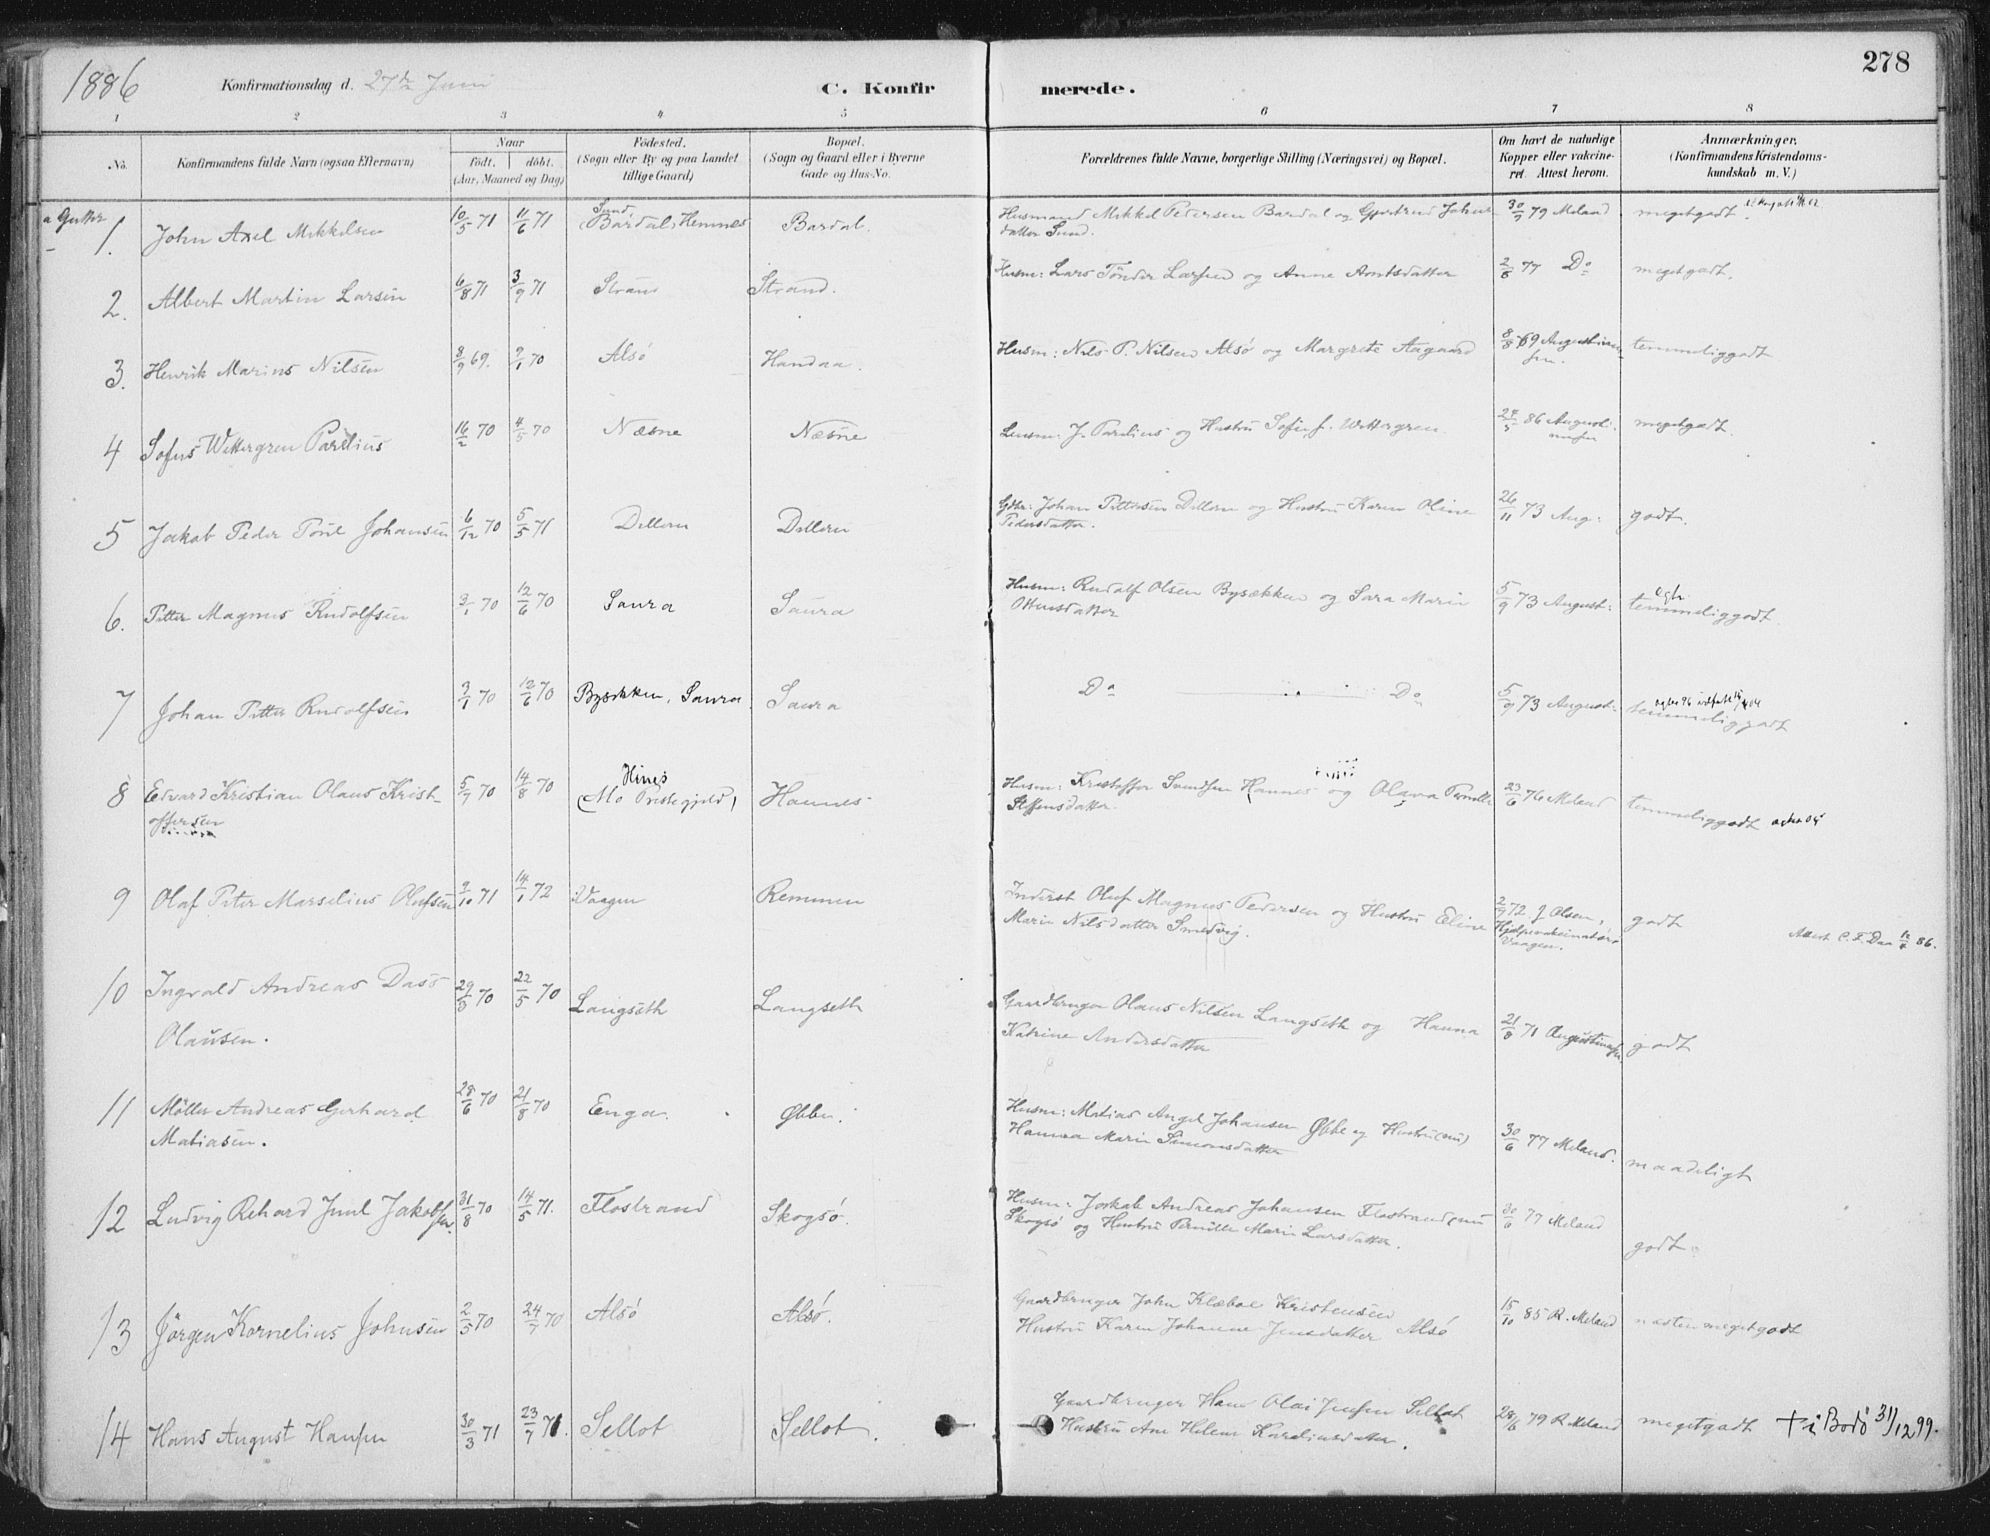 1886 Konfirmationsdag d. 27de Juni C. Konfirmerede. 278
1 2 3 4 5 6 7 8
No. Konfirmandens fulde Navn (ogsaa Efternavn) Naar födt. döbt. (Aar, Maaned og Dag) Födested. (Sogn eller By og paa Landet tillige Gaard) Bopæl. (Sogn og Gaard eller i Byerne Gade og Hus-No. Forældrenes fulde Navne, borgerlige Stilling (Næringsvei) og Bopæl. Om havt de naturlige Kopper eller vakcineret. Attest herom. Anmærkninger. (Konfirmandens Kristendomskundskab m. V.)
a Gutter
1. John Axel Mikkelsen 10/5 71 11/6 71 Sund Bardal, Hemnes Bardal. Husmand Mikkel Pedersen Bardal og Gjertrud Johns-
datter Sund. 30/9 79 Meland megetgodt.
2. Albert Martin Larsen 6/8 71 3/9 71 Strand Strand. Husm: Lars Tönder Larsen og Anne Arntsdatter 2/8 77 Do megetgodt.
3. Henrik Marius Nilsen 8/9 69. 9/1 70 Alsö Handaa. Husm: Nils P. Nilsen Alsö og Margrete Aagaard 8/8 69 Augustinussen. temmeliggodt
4 Sofus Wettergren Parelius 16/2 70 4/5 70 Næsne Næsne Lensm: J. Parelius og Hustru Sofie f. Wettergren. 86 Augustinusen megetgodt.
5 Jakob Peder Povl Johansen 6/12 70 5/5 71 Dillern Dillern Gdbr: Johan Pettersen Dillern og Hustru Karen Oline
Pedersdatter. 26/11 73 Aug: godt.
6. Petter Magnus Rudolfsen 3/1 70 12/6 70 Saura Saura Husm: Rudolf Olsen Bysækken og Sara Marie
Ottensdatter 5/9 73 August: temmeliggodt.
7 Johan Petter Rudolfsen 3/1 70 12/6 70 Bysækken, Saura Saura Do Do 5/9 73 August: temmeliggodt
8 Edvard Kristian Olaus Krist-
offersen 5/7 70 14/8 70 Hines (Mo Prestegjeld) Hannes Husm: Kristoffer Svendsen Hannes og Olava Pernille
Steffensdatter 23/6 76 Meland temmeliggodt
9 Olaf Peter Marselius Olufsen 9/10 71 14/1 72 Vaagen Remmen Inderst Oluf Magnus Pedersen og Hustru Eline
Marie Nilsdatter Smedvig. 2/9 72 J Olsen, Hjelpevakcinatör Vaagen. godt Attest C. F. Daa 86.
10 Ingvald Andreas Dass
Olausen. 29/3 70 22/5 70 Langseth Langseth Gaardbruger Olaus Nilsen Langseth og Hanna
Katrine Andersdatter 21/8 71 Augustinussen godt
11 Möller Andreas Gerhard
Matiasen. 28/6 70 21/8 70 Enga. Øbbe. Husm: Matias Angel Johansen Øbbe og Hustru (nu)
Hanna Marie Simonsdatter 30/6 77 Meland. maadeligt
12 Ludvig Rehard Juul Jakobsen 31/8 70 14/5 71. Flostrand Skogsö. Husm: Jakob Andreas Johansen Flostrand, nu
Skogsö og Hustru Pernille Marie Larsdatter. 30/6 77 Meland godt.
13 Jörgen Kornelius Johnsen 2/5 70 24/7 70 Alsö Alsö. Gaardbruger John Klæboe Kristensen
Hustru Karen Johanne Jensdatter Alsö 15/10 85 R. Meland næsten megetgodt
14 Hans August Hansen 30/3 71 23/7 71. Sellot Sellot. Gaardbruger Hans Olai Jensen Sellot
Hustru Ane Helene Kareliusdatter. 28/6 79 R. Meland megetgodt + i Bodö 31/12 99.